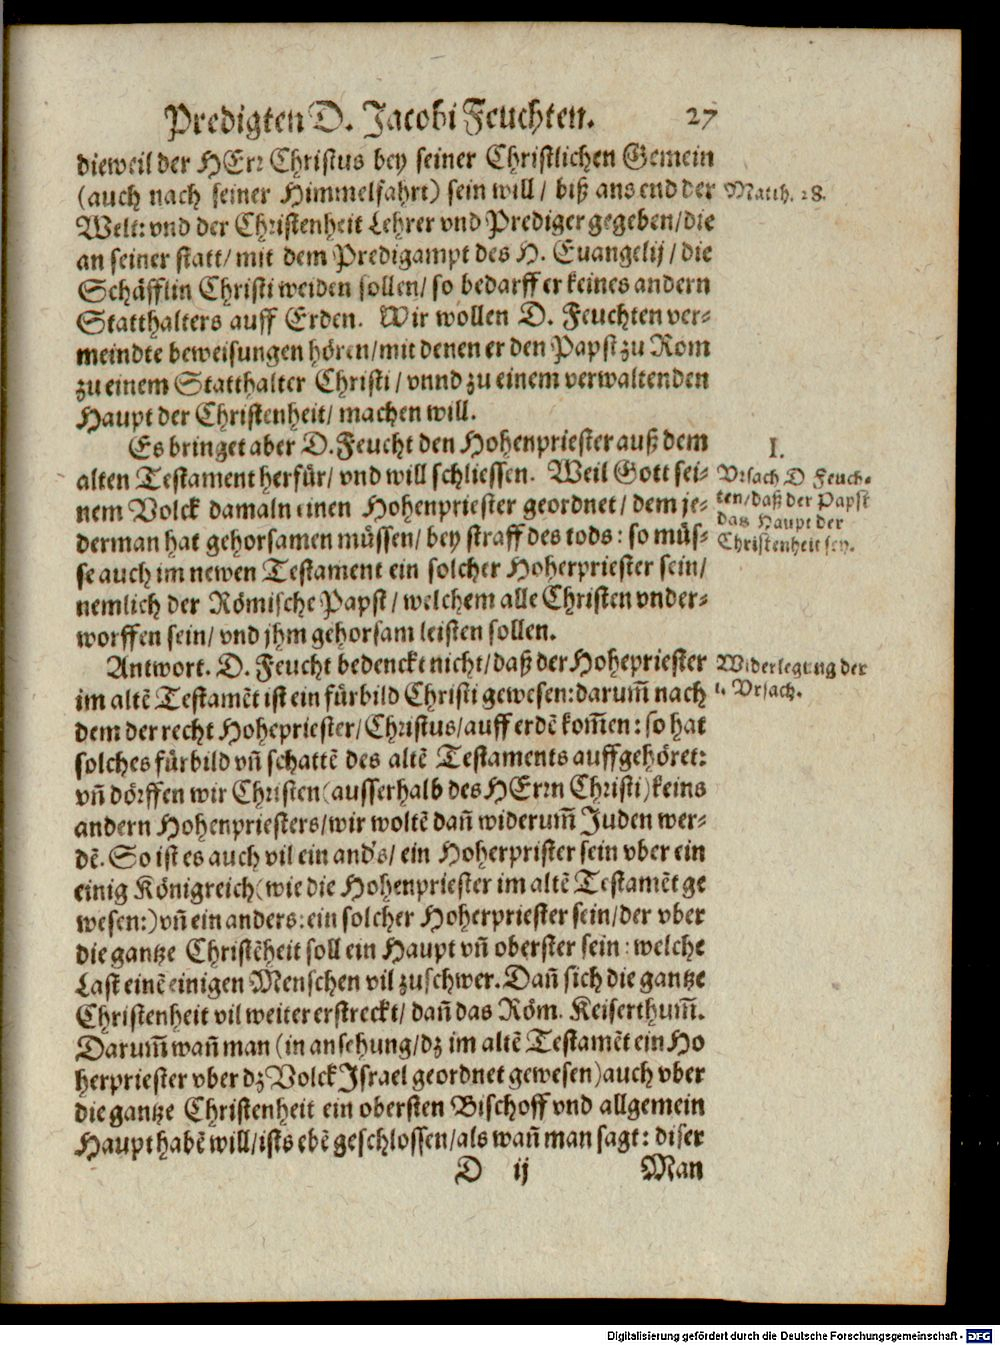 Predigten D. Jacobi Feuchten. 27
dieweil der HErr Christus bey seiner Christlichen Gemein
(auch nach seiner Himmelfahrt) sein will / biß ans end der
Welt: vnd der Christenheit Lehrer vnd Prediger gegeben / die
an seiner statt / mit dem Predigampt des H. Euangelij / die
Schäfflin Christi weiden sollen / so bedarff er keines andern
Statthalters auff Erden. Wir wollen D. Feuchten ver-
meindte beweisungen hören / mit denen er den Papst zu Rom
zu einem Statthalter Christi / vnnd zu einem verwaltenden
Haupt der Christenheit / machen will.
Es bringet aber D. Feucht den Hohenpriester auß dem
alten Testament herfür / vnd will schliessen. Weil Gott sei-
nem Volck damaln einen Hohenpriester geordnet / dem je-
derman hat gehorsamen müssen / bey straff des tods: so müs-
se auch im newen Testament ein solcher Hoherpriester sein /
nemlich der Römische Papst / welchem alle Christen vnder-
worffen sein / vnd jhm gehorsam leisten sollen.
Antwort. D. Feucht bedenckt nicht / daß der Hohepriester
im altē Testamēt ist ein fürbild Christi gewesen: darum̄ nach
dem der recht Hohepriester / Christus / auff erdē kom̄en: so hat
solches fürbild vn̄ schattē des altē Testaments auffgehöret:
vn̄ dörffen wir Christen (ausserhalb des HErrn Christi) keins
andern Hohenpriesters / wir woltē dan̄ widerum̄ Juden wer-
dē. So ist es auch vil ein and's / ein Hoherprister sein vber ein
einig Königreich (wie die Hohenpriester im altē Testamēt ge
wesen:) vn̄ ein anders: ein solcher Hoherpriester sein / der vber
die gantze Christēheit soll ein Haupt vn̄ oberster sein: welche
Last einē einigen Menschen vil zu schwer. Dan̄ sich die gantze
Christenheit vil weiter erstreckt / dan̄ das Röm. Keiserthum̄.
Darum̄ wan̄ man (in ansehung / dz im altē Testamēt ein Ho
herpriester vber dz Volck Israel geordnet gewesen) auch vber
die gantze Christenheit ein obersten Bischoff vnd allgemein
Haupt habē will / ists ebē geschlossen / als wan̄ man sagt: diser
D ij Man
Matth. 28.
I.
Vrsach D Feuch-
ten / daß der Papst
das Haupt der
Christenheit sey.
Widerlegung der
1. Vrsach.
Digitalisierung gefördert durch die Deutsche Forschungsgemeinschaft - DFG